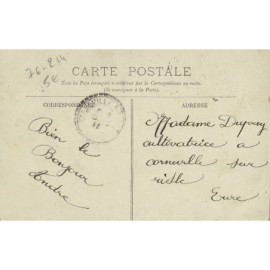 76-214
5€
CARTE POSTALE
Tous les Pays étrangers n'acceptent pas la Correspondance au recto.
(Se renseigner à la Poste).
CORRESPONDANCE
ADRESSE
Bien le
Bonjour
Andre
Madame Dupouy
cultivatrice
a corneville sur
risle
Eure